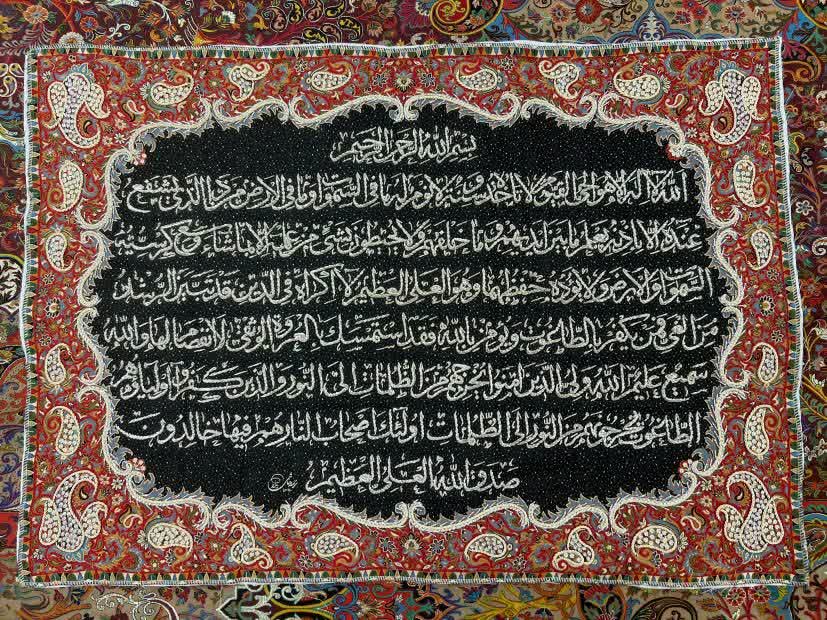 بسم الله الرحمن الرحیم
الله لا اله الا هو الحی القیوم لا تاخذه سنة ولا نوم له ما فی السموات و ما فی الارض من ذا الذی یشفع
عنده الا باذنه یعلم ما بین ایدیهم و ما خلفهم ولا یحیطون بشیء من علمه الا بما شاء وسع کرسیه
السموات والارض ولا یوده حفظهما وهو العلی العظیم لا اکراه فی الدین قد تبین الرشد
من الغی فمن یکفر بالطاغوت و یومن بالله فقد استمسک بالعروة الوثقی لا انفصام لها والله
سمیع علیم الله ولی الذین امنوا یخرجهم من الظلمات الی النور والذین کفروا اولیاوهم
الطاغوت یخرجونهم من النور الی الظلمات اولئک اصحاب النار هم فیها خالدون
صدق الله العلی العظیم